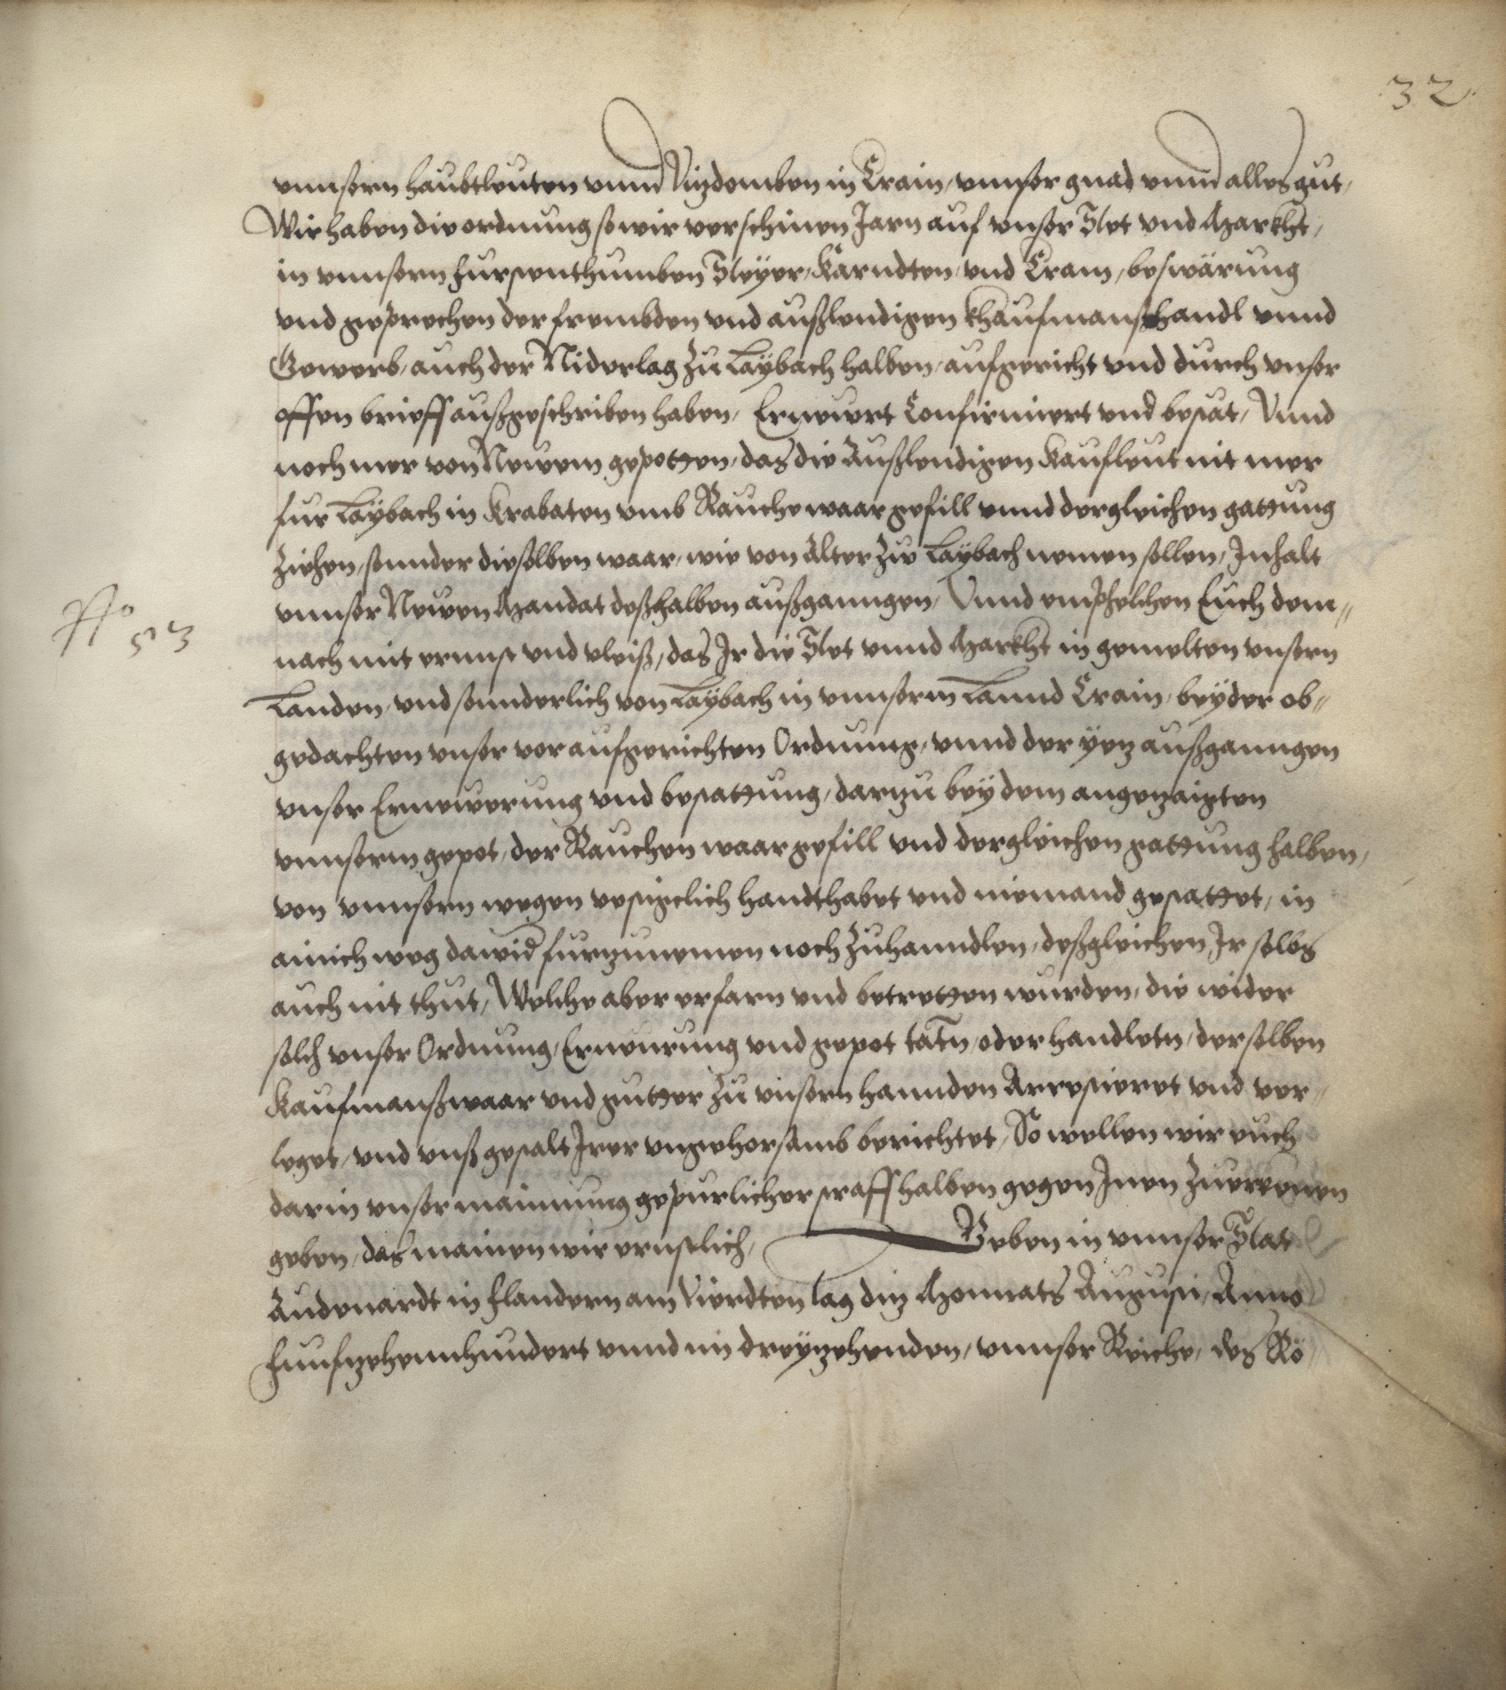 32.
vnnsern haubtleuten vnnd Vizdomben in Crain, vnnser gnad vnnd alles gut,
Wir haben die ordnung so wir verschinen Jarn auf vnser Stet vnd Markht,
in vnnsern Furstenthumben Steyer, Kärndten vnd Crain, beswärung
vnd geprechen der frembden vnd außlendigen khaufmanßhandl vnnd
Gewerb, auch der Niderlag zu Laybach halben, aufgericht vnd durch vnser
offen brieff außgeschriben haben, Ernewrt Confirmiert vnd bestät, Vnnd
noch mer von Newem gepotten, das die Außlendigen Kaufleut nit mer
fur Laybach in Krabaten vmb Rauche waar gefill vnnd dergleichen gattung
ziehen, sonnder dieselben waar, wie von Alter zu Laybach nemen sollen, Inhalt
vnnser Newen Mandat deßhalben außganngen, Vnnd empfelchen Euch dem-
No 53
nach mit ernnst vnd vleiß, das Ir die Stet vnnd Markht in gemelten vnsern
Landen, vnd sonnderlich von Laybach in vnnserm Lannd Crain, bey der ob-
gedachten vnser vor aufgerichten Ordnung, vnnd der yez außganngen
vnser Ernewerung vnd bestattung, darzu bey dem angezaigten
vnnserm gepot, der Rauchen waar gefill vnd dergleichen gattung halben,
von vnnsern wegen vestigclich handthabet vnd niemand gestattet, in
ainich weg dawider furzunemen noch zuhanndlen, deßgleichen Ir selbs
auch nit thut, Welche aber erfarn vnd betretten wurden, die wider
solch vnser Ordnung, Ernewrung vnd gepot tätn, oder handletn, derselben
Kaufmanßwaar vnd gutter zu vnsern hannden Arrestieret vnd ver-
leget, vnd vnß gestalt Irer vngehorsamb berichtet, So wellen wir euch
darin vnser mainnung gepurlicher straff halben gegen Inen zuerkennen
geben, das mainen wir ernstlich, Geben in vnnser Stat
Audenardt in Flandern am Vierdten tag diz Monnats Augusti, Anno
Funfzehennhundert vnnd im dreyzehenden, vnnser Reiche, des Rö-